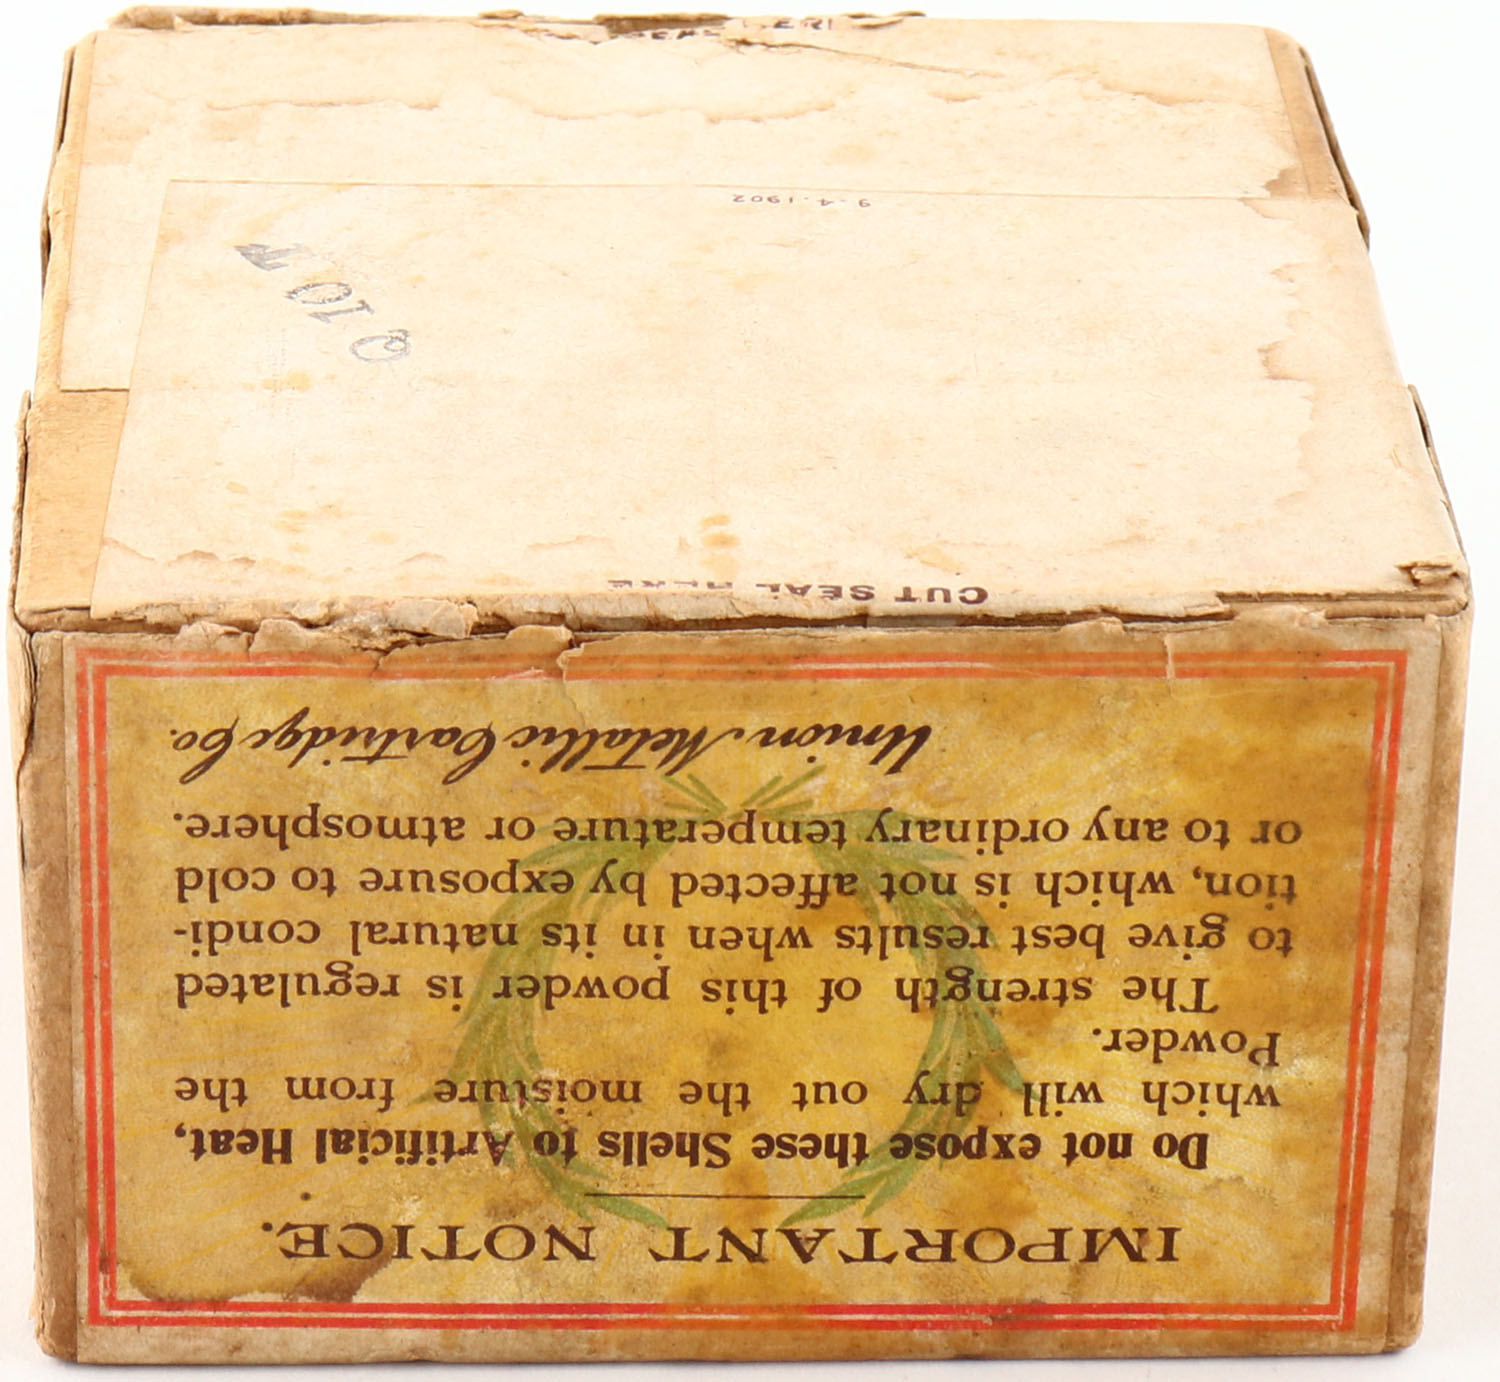 IMPORTANT NOTICE.
Do not expose these Shells to Artificial Heat,
which will dry out the moisture from the
Powder.
The strength of this powder is regulated
to give best results when in its natural condi-
tion, which is not affected by exposure to cold
or to any ordinary temperature or atmosphere.
Union Metallic Cartridge Co.
CUT SEAL HERE
Q 10 T
9.4.1902